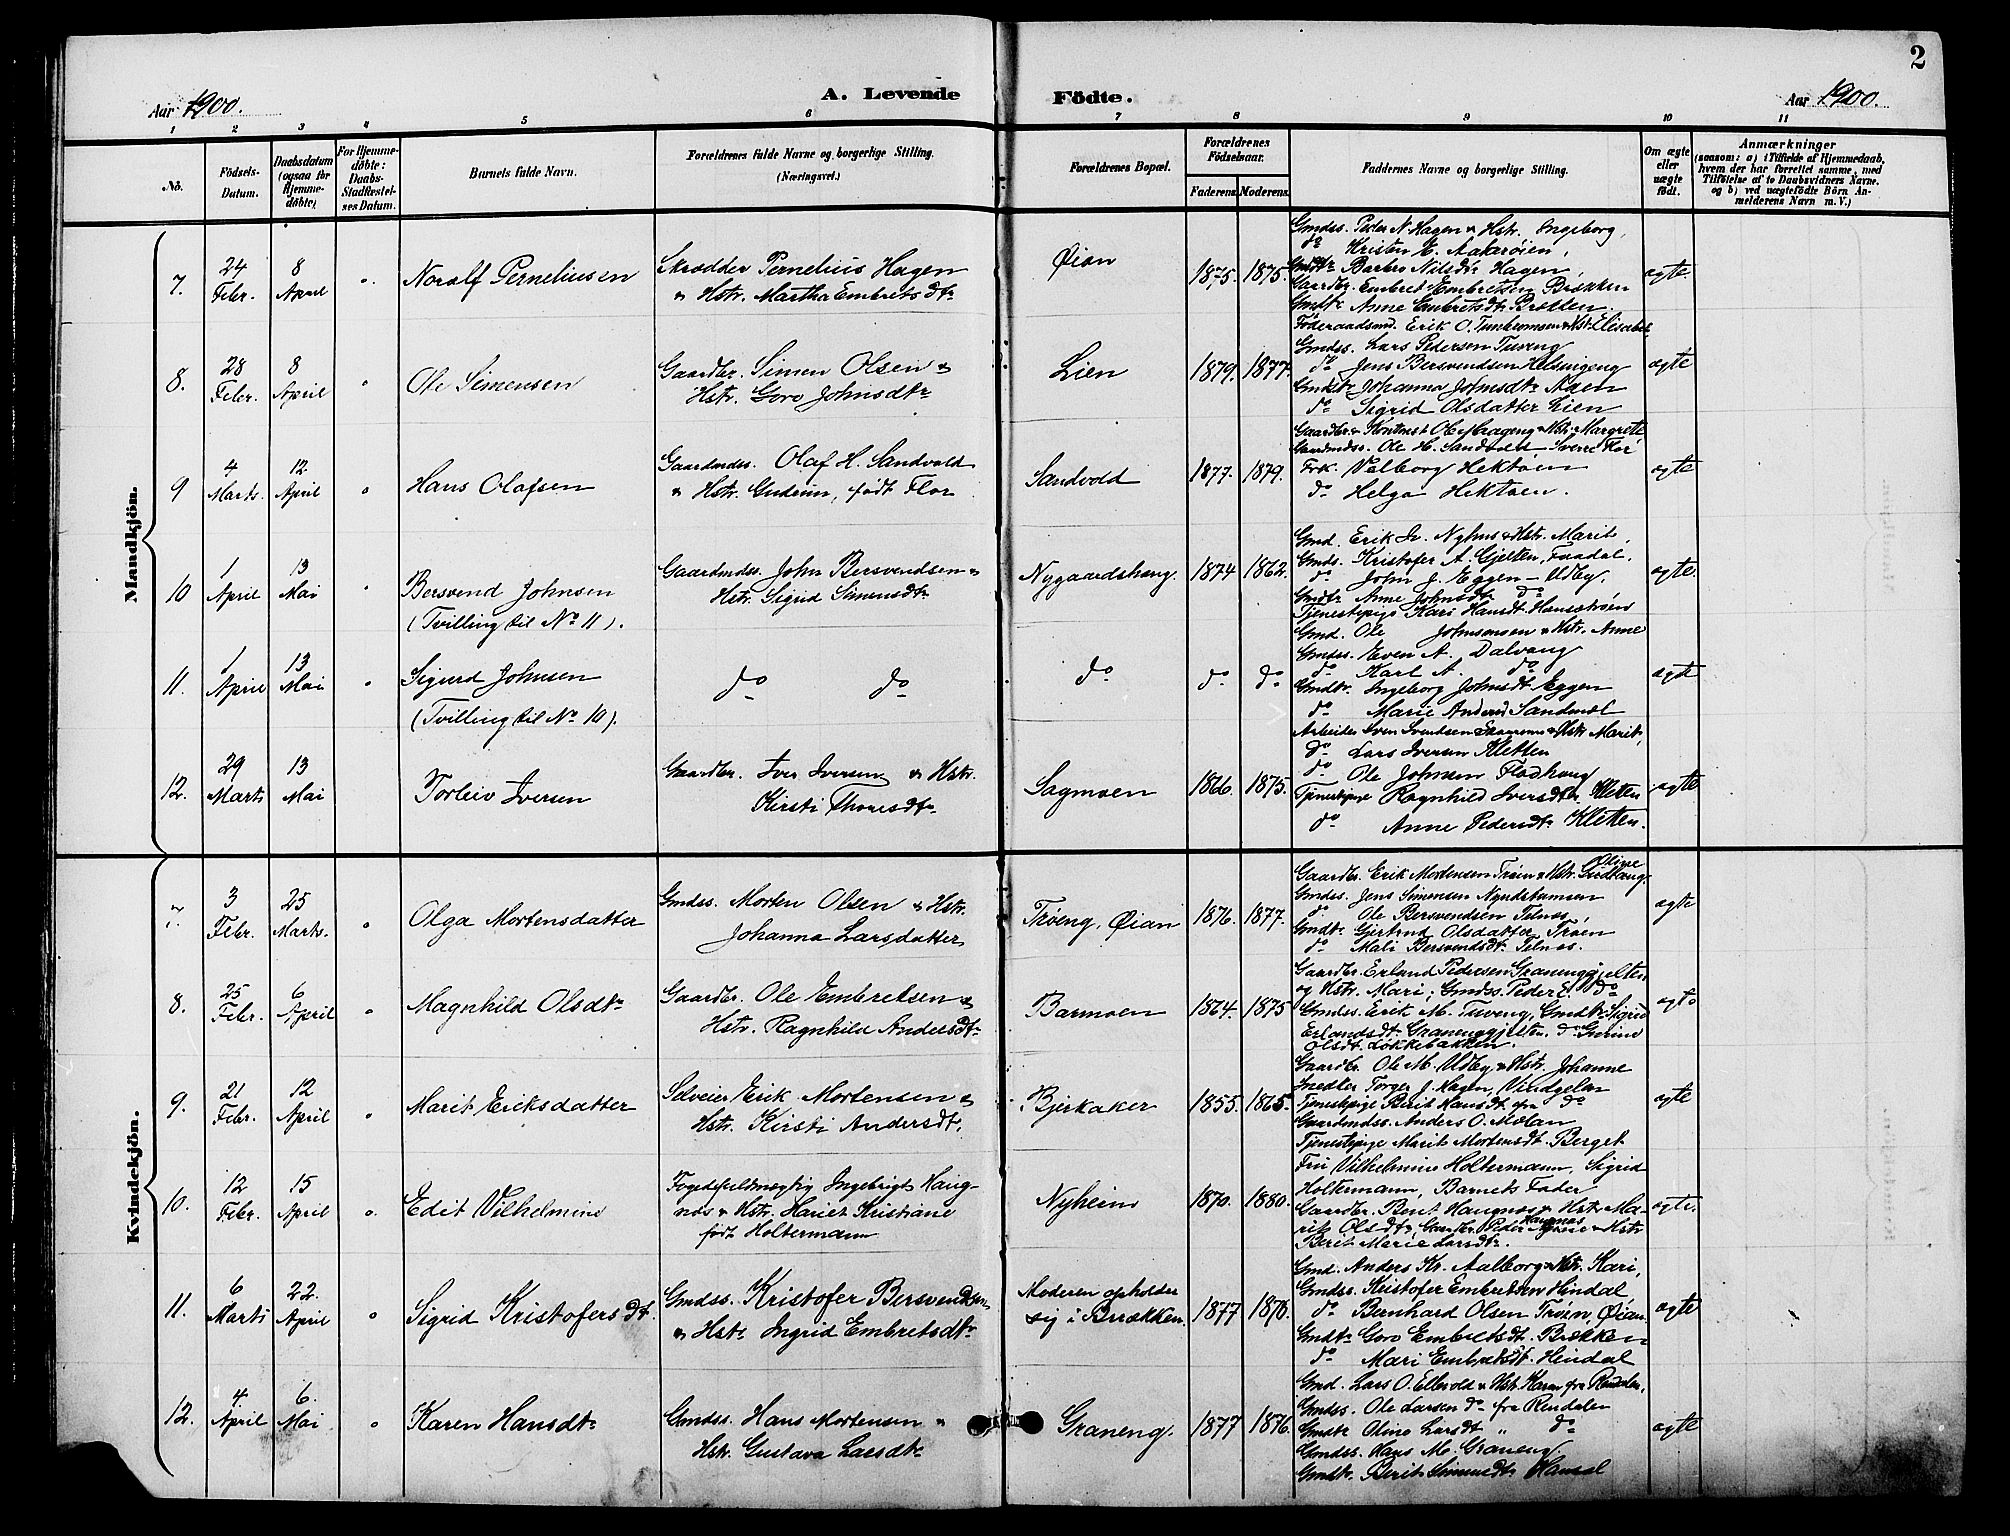 2
Aar 1900.
A. Levende
Födte.
Aar 1900.
1 2 3 4 5 6 7 8 9 10 11
No.
Födsels-
Datum.
Daabsdatum
(ogsaa for
Hjemme-
döbte)
For Hjemme-
döbte:
Daabs-
Stadfæstel-
ses Datum.
Barnets fulde Navn.
Forældrenes fulde Navne og borgerlige Stilling.
(Næringsvei.)
Forældrenes Bopæl.
Forældrenes
Födselsaar.
Faderens. Moderens.
Faddernes Navne og borgerlige Stilling.
Om ægte
eller
uægte
født.
Anmærkninger
(saasom: a) i Tilfælde af Hjemmedaab,
hvem der har forrettet samme, med
Tilföielse af to Daabsvidners Navne,
og b) ved uægtefödte Börn An-
melderens Navn m. V.)
Mandkjön.
7. 24 Febr. 8 April
Noralf Perneliussen
Skrædder Pernelius Hagen
& Hstr. Martha Embretsdtr
Øian
1875. 1875.
Gmdss. Peder N. Hagen & Hstr. Ingeborg,
do Kristen E. Aakerøien,
Gmdtr Barbro Nilsdtr Hagen,
Gaardbr. Embret Embretsen Brækken
Gmdtr Anne Embretsdtr Bratten
ægte.
8. 28 Febr. 8 April
Ole Simensen
Gaardbr. Simen Olsen &
Hstr. Goro Johnsdtr
Lien
1879. 1877.
Föderaadsmd. Erik O. & Hstr. Elisabet,
Gmdss. Lars Pedersen Tuveng
do Jens Bersvendsen
Gmdtr Johanna Johnsdtr Moen
do Sigrid Olsdatter Lien
ægte
9 4 Marts. 12 April
Hans Olafsen
Gaardmdss. Olaf H. Sandvold
& Hstr. Gudrun, født Flor
Sandvold
1877. 1879.
Gaardbr. & Hstr. Margrete
Gaardmdss. Ole H. Sandvold Sverre Flor
Frk. Valborg Hektoen
do Helga Hektoen.
ægte
10 1 April 13 Mai
Bersvend Johnsen
(Tvilling til No 11).
Gaardmdss. John Bersvendsen &
Hstr. Sigrid Simensdtr
Nygaardshaug.
1874 1862.
Gmd. Erik Nyhus & Hstr. Marit,
Gmds. Kristofer A. Gjelten, Faadal.
do John J. Eggen - Udby.
Gmdtr Anne Johnsdt do
Tjenestepige Kari Hansdt.
ægte.
11. 1 April 13 Mai
Sigurd Johnsen
(Tvilling til No 10).
do do
do
do do
Gmd. Ole & Hstr. Anne
Gmdss. Even A. Dalvang
do Karl A. do
Gmdtr. Ingeborg Johnsdt. Eggen
do Marie Andersd Sandmæl
ægte
12. 29 Marts 13 Mai
Torleiv Iversen
Gaardbr. Iver Iversen & Hstr.
Kirsti Thoresdtr
Sagmoen
1866. 1875.
Arbeider Sven Svendsen & Hstr Marit,
do Lars Iversen Kletten
do Ole Johnsen Flodhaug
Tjenestpige Ragnhild Iversdtr Kletten
do Anne Pedersdtr Kletten.
ægte
Kvindekjön.
7. 3 Febr. 25 Marts.
Olga Mortensdatter
Gmdss. Morten Olsen & Hstr.
Johanna Larsdatter
Trøeng, Øian
1876. 1877.
Gaardbr. Erik Mortensen Trøen & Hstr. Oline
Gmdss. Jens Simensen
do Ole Bersvendsen Telnes,
Gmdtr. Gjertrud Olsdatter Trøen
do Mali Bersvendsdt. Telnes.
ægte
8. 25 Febr. 6 April
Magnhild Olsdtr
Gaardbr. Ole Embretsen &
Hstr. Ragnhild Andersdtr
Barmoen
1864. 1875
Gaardbr. Erland Pedersen Granenggjelten
og Hstr. Mari, Gmdss. Peder E. do
Gmdss. Erik M. Tuveng, Gmdtr Sigrid
Erlandsdtr Granenggjelten. do
Olsdt. Løkkebakken.
ægte
9. 21 Febr. 12 April
Marit Eriksdatter
Selveier Erik Mortensen &
Hstr. Kirsti Andersdt.
Bjerkaker
1855. 1865.
Gaardbr. Ole M. Udby & Hstr. Johanne
Snedker Torger J. Hagen, Vindgelen
Tjenestepige Berit Hansdt. fra do
Gaardmdss. Anders O. Mælan
Tjenestepige Marit Mortensdt. Berget
ægte
10. 12 Febr. 15 April
Edit Vilhelmine
Fogedfuldmægtig Ingebrigt Haug-
næs & Hstr. Hariet Kristiane
født Holtermann
Nyheim
1870. 1880.
Fru Vilhelmine Holtermann, Sigrid
Holtermann, Barnets Fader
Gaardbr. Bent Haugnæs & Hstr. Ma-
rit Olsdtr, Gaardbr. Peder Haugnæs & Hstr
Berit Marie Larsdtr.
ægte.
11. 6 Marts 22. April
Sigrid Kristofersdt.
Gmdss. Kristofer Bersvendsen
& Hstr Ingrid Embretsdtr
Moderen opholder
sig i Brækken.
1877 1876.
Gmd. Anders Kr. Aalborg & Hstr. Kari,
Gmdss. Kristofer Embretsen Hindal,
do Bernhard Olsen Trøen, Øian
Gmdtr Goro Embretsdt. Brækken
do Mari Embretsdt. Hindal
ægte
12. 4. April 6. Mai
Karen Hansdtr
Gmdss. Hans Mortensen &
Hstr. Gustava Larsdtr
Graneng.
1877 1876.
Gmd. Lars O. Ellevold & Hstr. Karen fra Rendalen,
Gmdss. Ole Larsen do fra Rendalen
Gmdtr Oline Larsdt " do
Gmdss. Hans M. Graneng.
Gmdtr. Berit Simensdtr
ægte